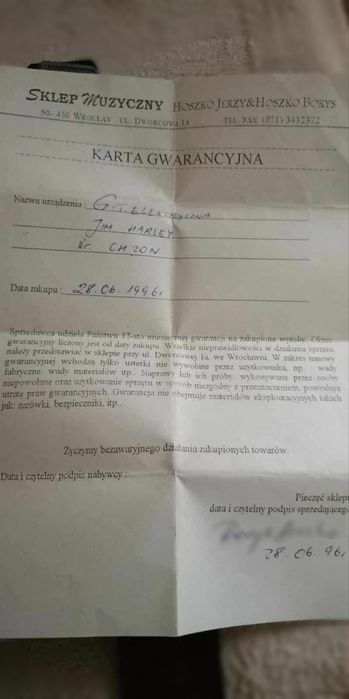 SKLEP MUZYCZNY HOSZKO JERZY&HOSZKO BORYS
50-456 WROCŁAW UL. DWORCOWA 1A TEL./FAX (071) 3432372
KARTA GWARANCYJNA
Nazwa urządzenia: GIT. ELEKTRYCZNA
JIM HARLEY
Nr. CHZON
Data zakupu: 28.06.1996r.
Sprzedawca udziela Państwu 12-sto miesięcznej gwarancji na zakupione wyroby. Okres
gwarancyjny liczony jest od daty zakupu. Wszelkie nieprawidłowości w działaniu sprzętu
należy przedstawiać w sklepie przy ul. Dworcowej 1a, we Wrocławiu. W zakres umowy
gwarancyjnej wchodzą tylko usterki nie wywołane przez użytkownika, np. : wady
fabryczne, wady materiałów itp.. Naprawy lub ich próby, wykonywane przez osoby
niepowołane oraz użytkowanie sprzętu w sposób niezgodny z przeznaczeniem, powodują
utratę praw gwarancyjnych. Gwarancja nie obejmuje materiałów eksploatacyjnych takich
jak: żarówki, bezpieczniki, itp..
Życzymy bezawaryjnego działania zakupionych towarów.
Data i czytelny podpis nabywcy :
Pieczęć sklepu
data i czytelny podpis sprzedającego
28.06.96r.